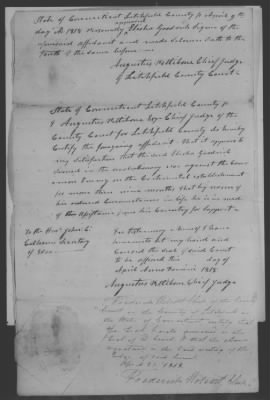 State of Connecticut Litchfield County ss April 9th
day AD 1818 Personally appeared Elisha Goodrich Signer of the
foregoing affidavit and made solemn Oath to the
Truth of the same before me
Augustus Pettibone Chief Judge
of Litchfield County Court
State of Connecticut Litchfield County ss
I Augustus Pettibone Esqr Chief Judge of the
County Court for Litchfield County do hereby
Certify the foregoing affidavit that it appears to
my Satisfaction that the said Elisha Goodrich
Served in the revolutionary war against the common
enemy on the Continental establishment
for more than nine months that by reason of
his reduced Circumstances in life he is in need
of the assistance of his Country for Support
To the Honr John C.
Calhoun Secretary
of War
In testimony whereof I have
hereunto set my hand and
Caused the seal of said Court
to be affixed this day of
April Anno Domini 1818
Augustus Pettibone Chief Judge
I Frederick Wolcott Clerk of the County
Court in the County of Litchfield in
the State of Connecticut certify that
the
Seal of the Court & that the above
signature is the hand writing of the
Judge of said Court
April 1818
Frederick Wolcott Clerk